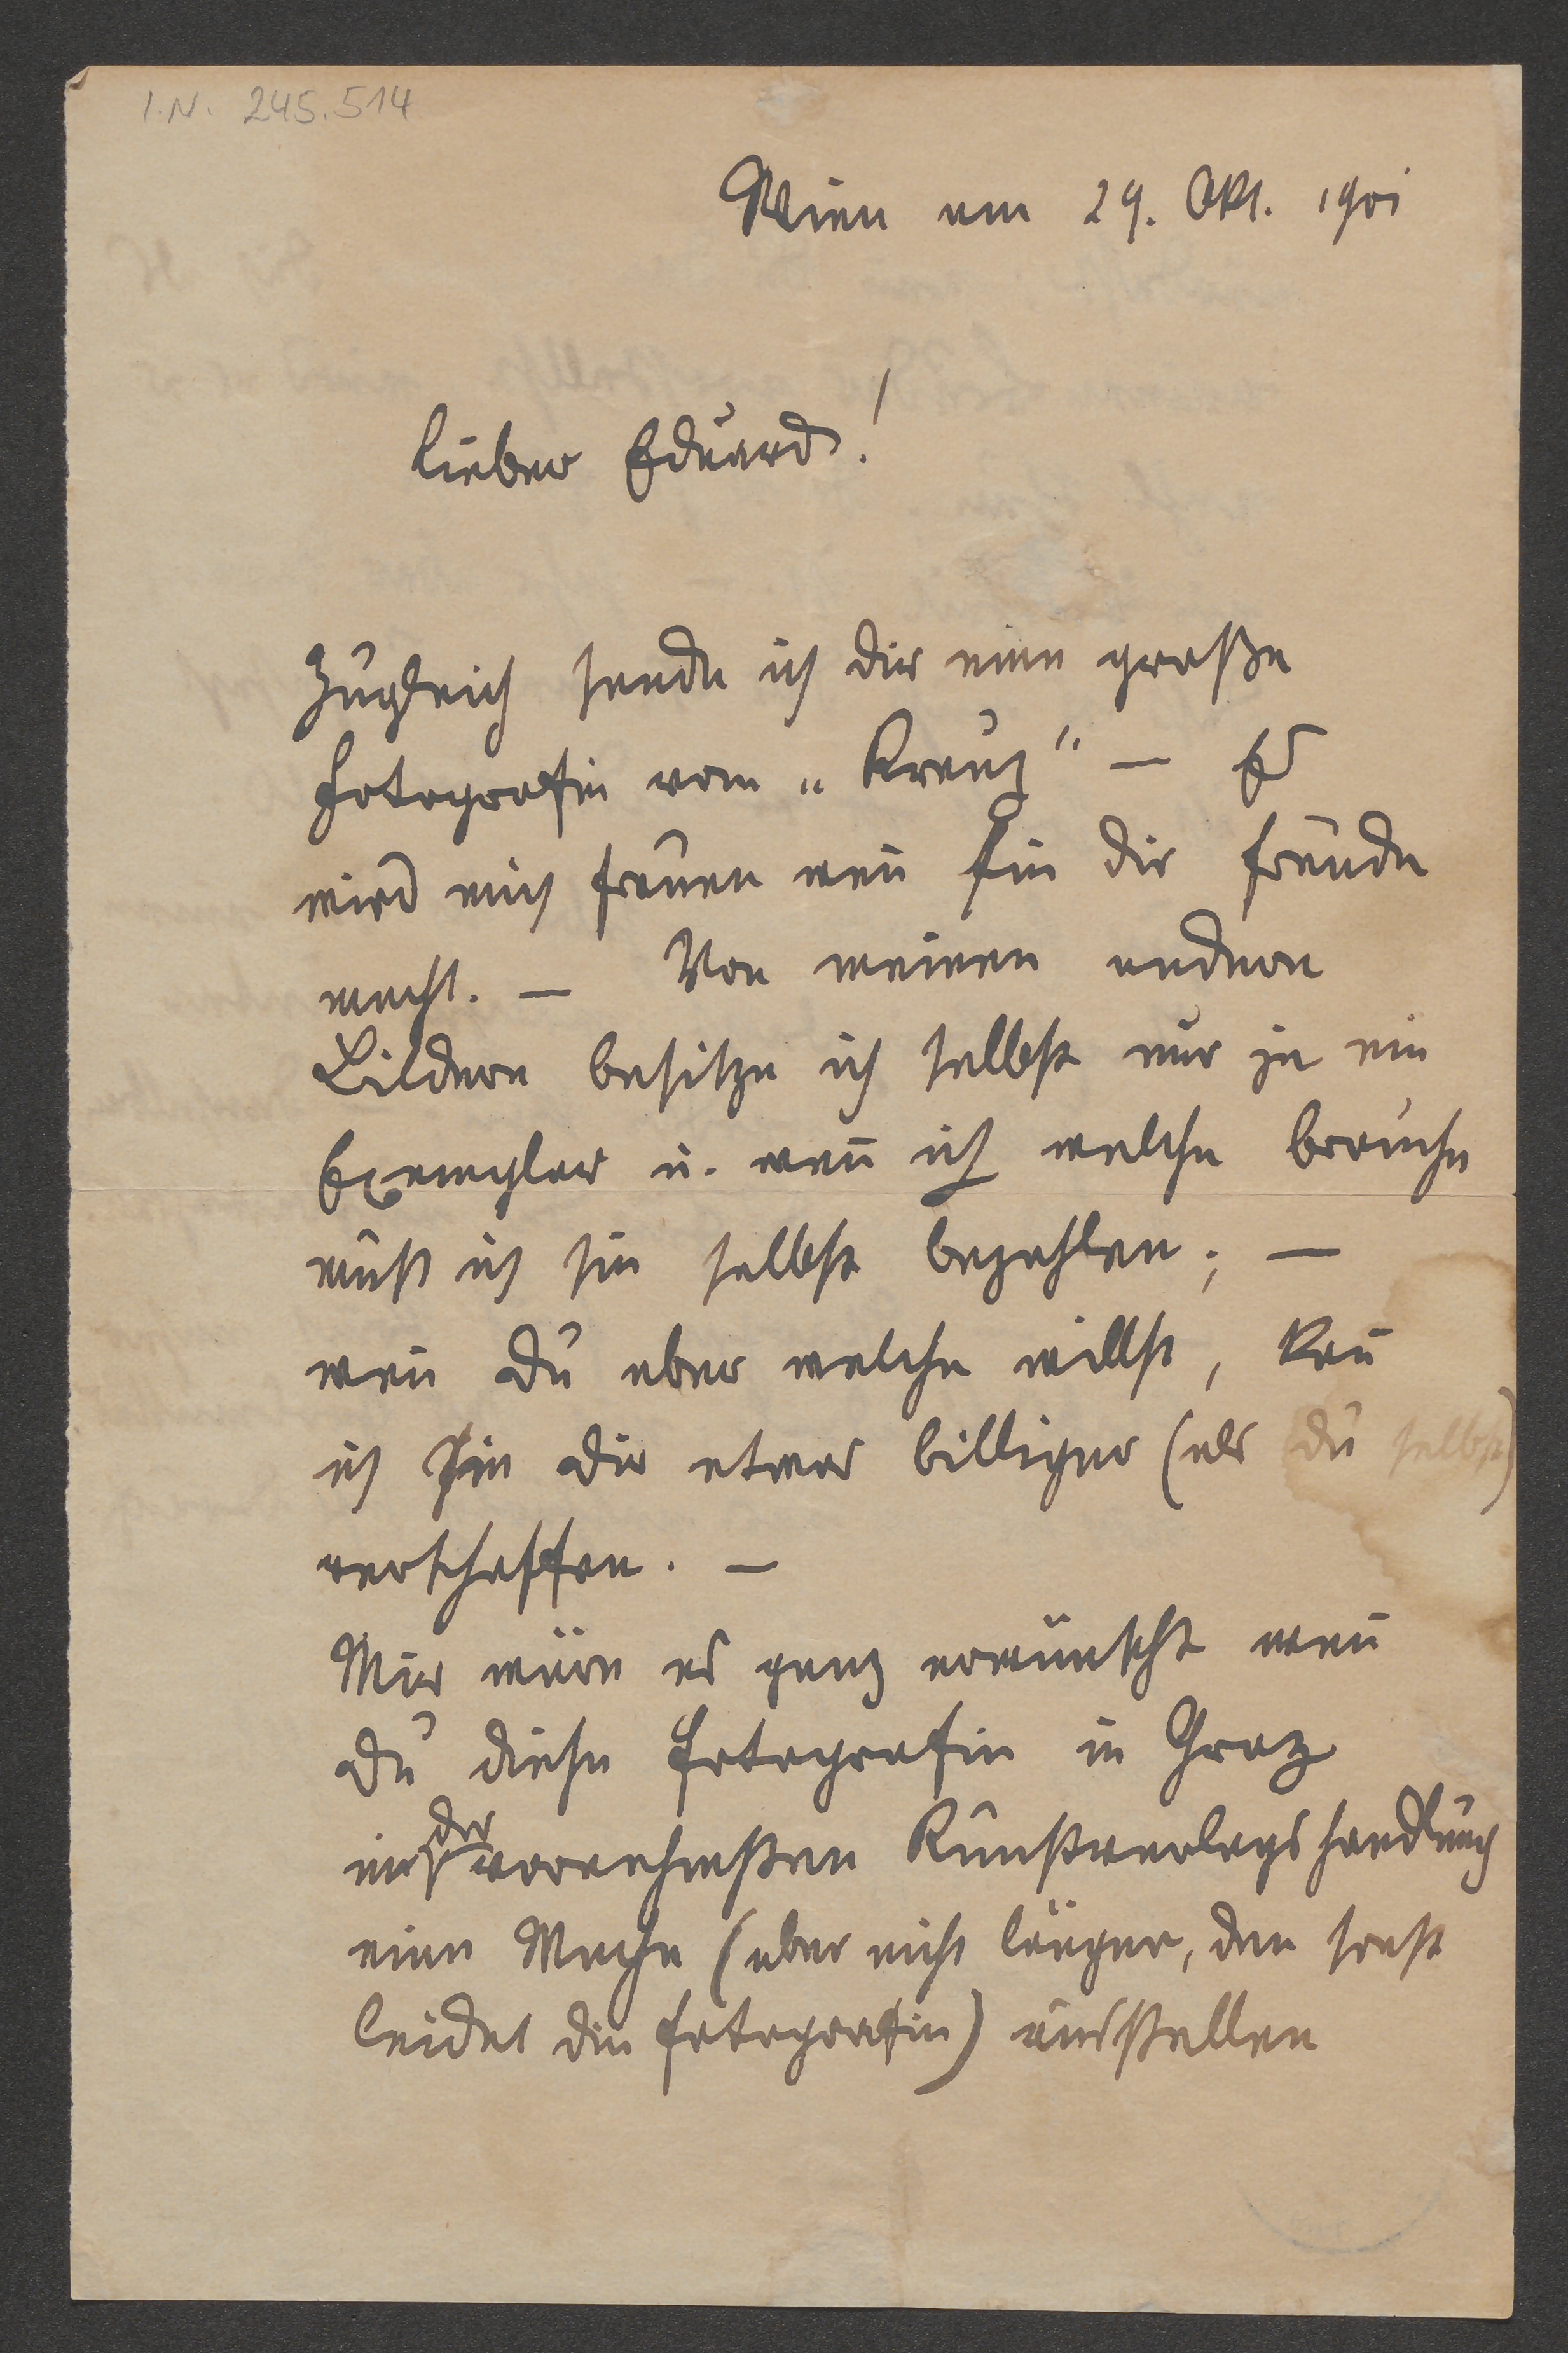 I.N. 245.514
Wien am 29. Okt. 1901
Lieber Eduard!
Zugleich sende ich dir eine große
Fotografie vom „Kreuz" — Es
wird mich freuen wen̄ sie dir Freude
macht. — Von meinen andern
Bildern besitze ich selbst nur je ein
Exemplar u. wen̄ ich welche brauche
muß ich sie selbst bezahlen; —
wen̄ du aber welche willst, kan̄
ich sie dir etwas billiger (als du selbst)
verschaffen. —
Mir wäre es ganz erwünscht wen̄
du diese Fotografie in Graz
in der vornehmsten Kunstverlagshandlung
eine Woche (aber nicht länger, den sonst
leidet die Fotografie) ausstellen